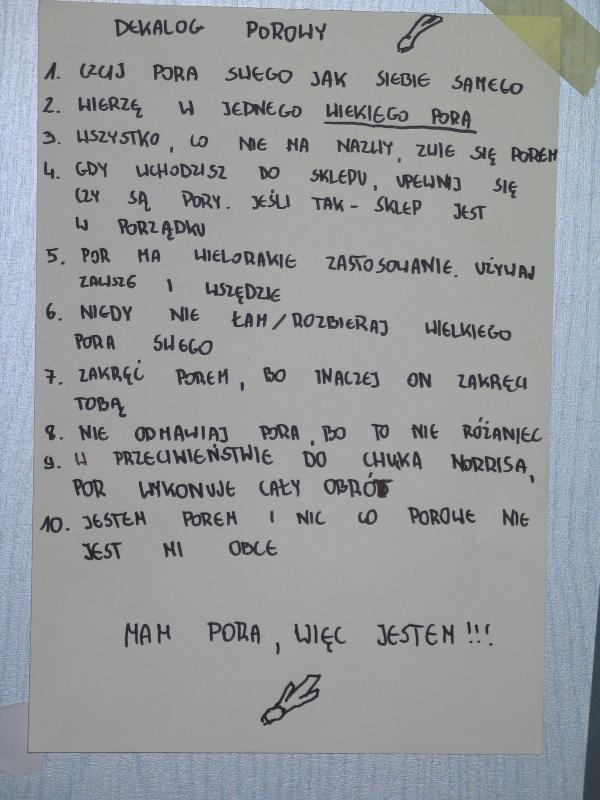 DEKALOG POROWY
1. CZUJ PORA SWEGO JAK SIEBIE SAMEGO
2. WIERZĘ W JEDNEGO WIEKIEGO PORA
3. WSZYSTKO, CO NIE MA NAZWY, ZWIE SIĘ POREM
4. GDY WCHODZISZ DO SKLEPU, UPEWNIJ SIĘ
CZY SĄ PORY. JEŚLI TAK - SKLEP JEST
W PORZĄDKU
5. POR MA WIELORAKIE ZASTOSOWANIE. UŻYWAJ
ZAWSZE I WSZĘDZIE
6. NIGDY NIE ŁAM/ROZBIERAJ WIELKIEGO
PORA SWEGO
7. ZAKRĘĆ POREM, BO INACZEJ ON ZAKRĘCI
TOBĄ
8. NIE ODMAWIAJ PORA, BO TO NIE RÓŻANIEC
9. W PRZECIWIEŃSTWIE DO CHUKA NORRISA,
POR WYKONUJE CAŁY OBRÓT
10. JESTEM POREM I NIC CO POROWE NIE
JEST MI OBCE
MAM PORA, WIĘC JESTEM!!!